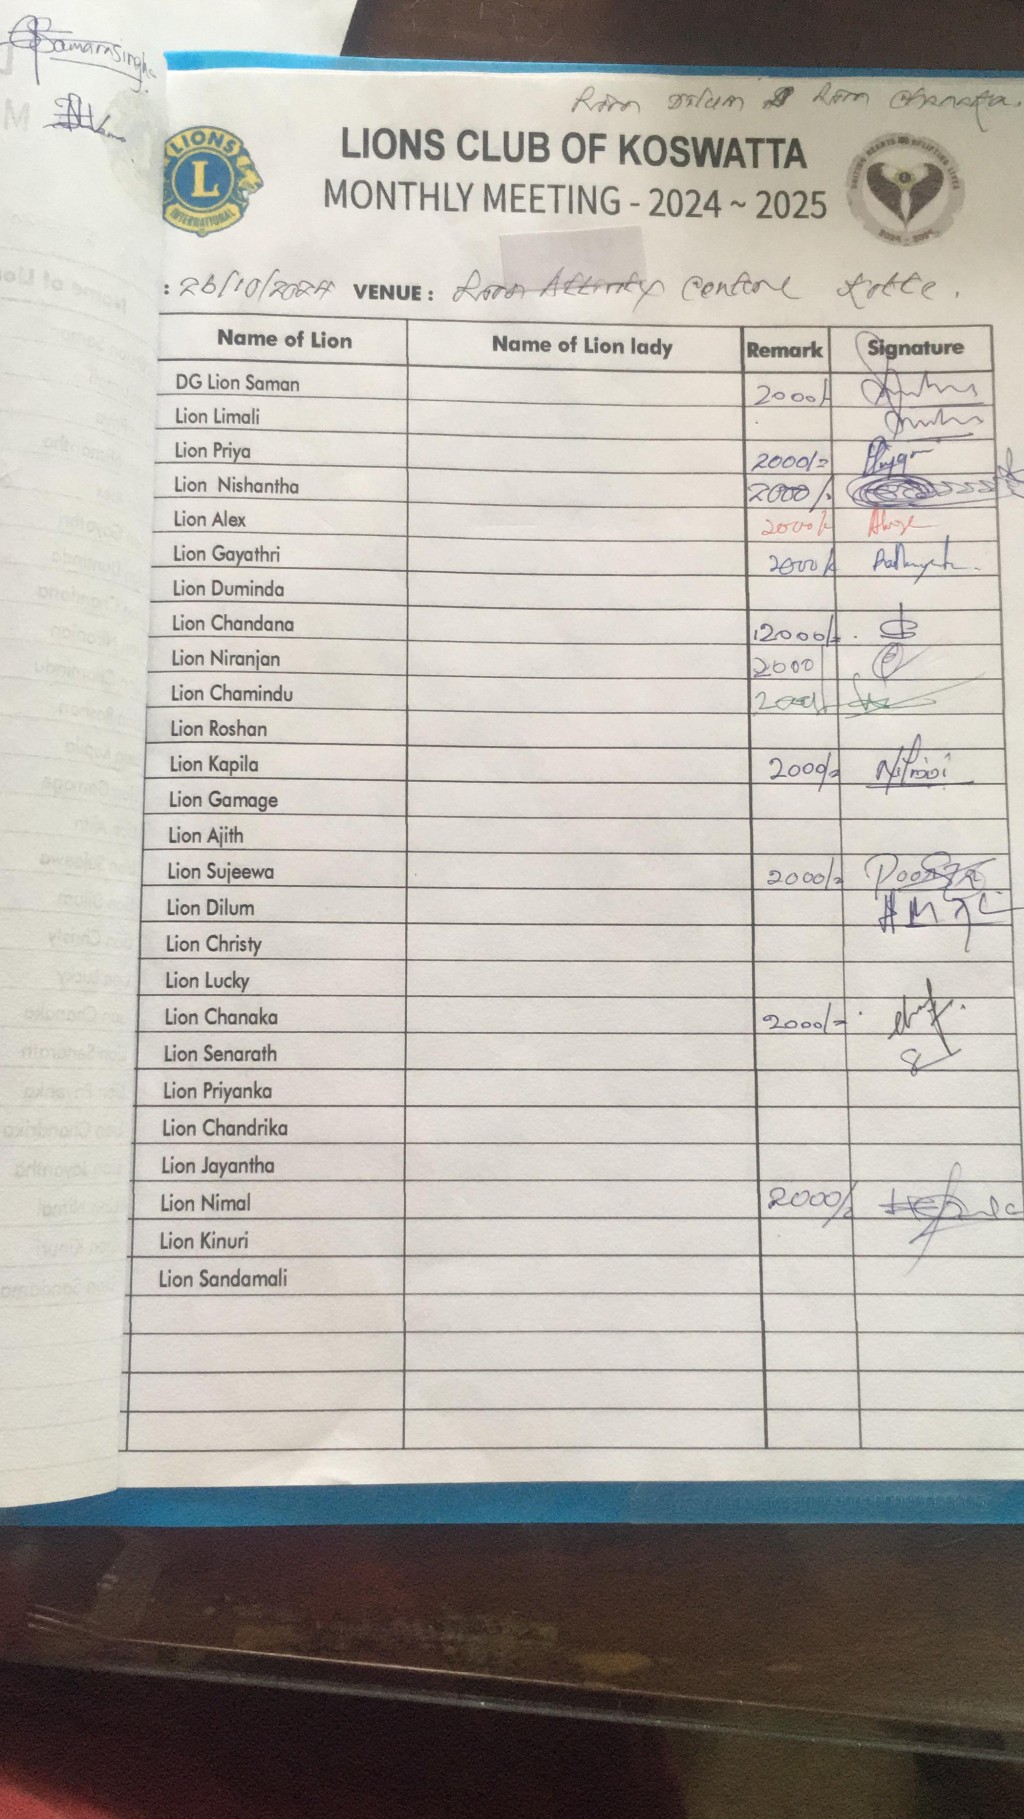 Samarasinghe
Lion Dilum & Lion Chanaka.
LIONS
L
INTERNATIONAL
LIONS CLUB OF KOSWATTA
MONTHLY MEETING - 2024 ~ 2025
: 26/10/2024 VENUE : Lion Activity Centre Kotte.
Name of Lion Name of Lion lady Remark Signature
DG Lion Saman 2000/-
Lion Limali
Lion Priya 2000/=
Lion Nishantha 2000/-
Lion Alex 2000/-
Lion Gayathri 2000/-
Lion Duminda
Lion Chandana 2000/-
Lion Niranjan 2000
Lion Chamindu 2000/-
Lion Roshan
Lion Kapila 2000/=
Lion Gamage
Lion Ajith
Lion Sujeewa 2000/=
Lion Dilum
Lion Christy
Lion Lucky
Lion Chanaka 2000/=
Lion Senarath
Lion Priyanka
Lion Chandrika
Lion Jayantha
Lion Nimal 2000/=
Lion Kinuri
Lion Sandamali